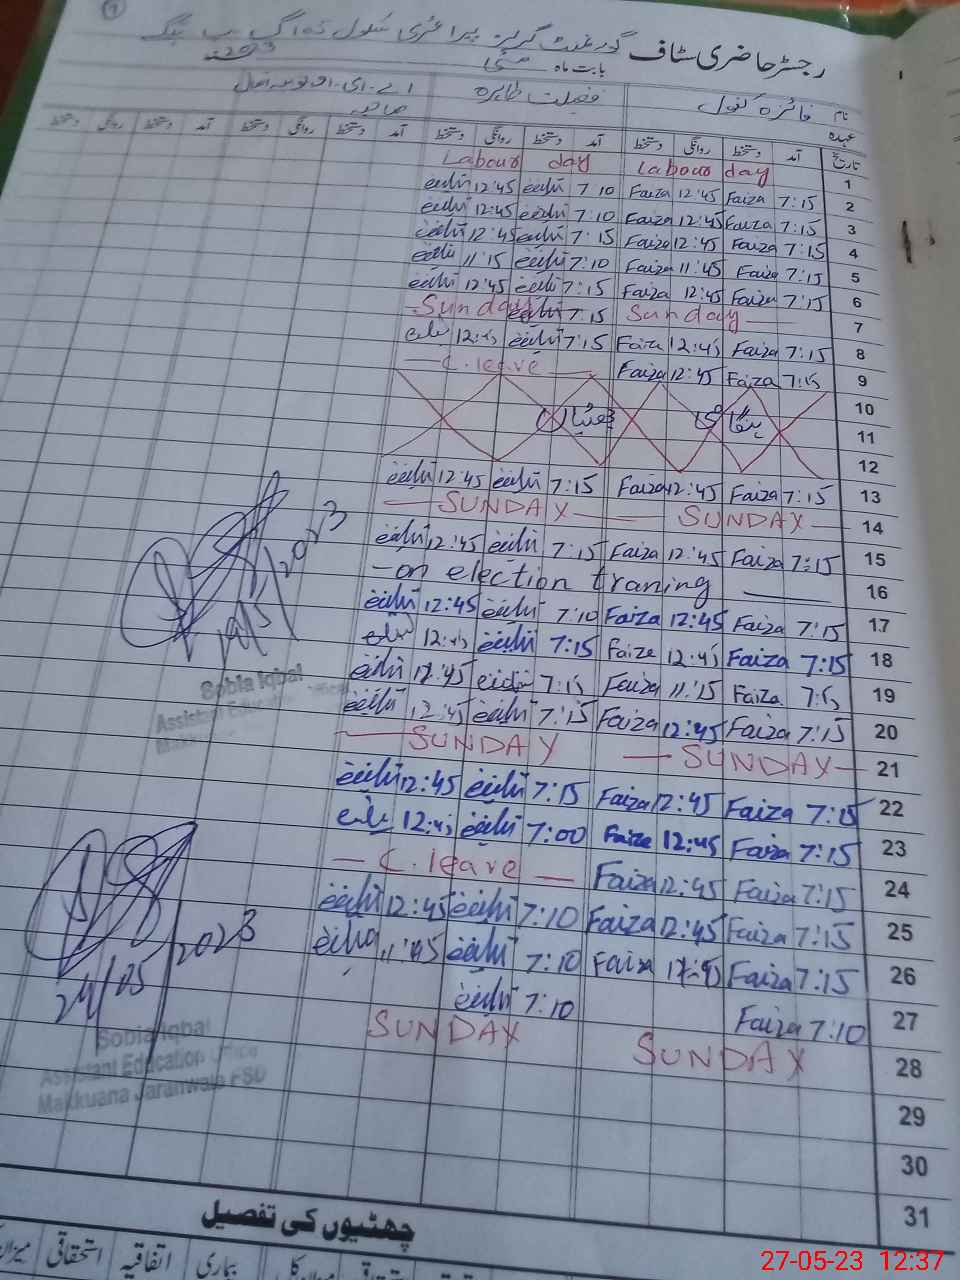 رجسٹر حاضری سٹاف گورنمنٹ گرلز پرائمری سکول
بابت ماہ مئی 2023
نام فائزہ کنول فضیلت طاہرہ
عہدہ صاحبہ
تاریخ آمد دستخط روانگی دستخط آمد دستخط روانگی دستخط آمد دستخط روانگی دستخط آمد دستخط روانگی دستخط
1 Labour day Labour day
2 7:15 Faiza 12:45 Faiza 7:10 فضیلت 12:45 فضیلت
3 7:15 Faiza 12:45 Faiza 7:10 فضیلت 12:45 فضیلت
4 7:15 Faiza 12:45 Faiza 7:15 فضیلت 12:45 فضیلت
5 7:15 Faiza 11:45 Faiza 7:10 فضیلت 11:15 فضیلت
6 7:15 Faiza 12:45 Faiza 7:15 فضیلت 12:45 فضیلت
7 Sunday 7:15 فضیلت Sunday
8 7:15 Faiza 12:45 Faiza 7:15 فضیلت 12:45 فضیلت
9 7:15 Faiza 12:45 Faiza C.leave
10 ہنگامی چھٹیاں
11
12
13 7:15 Faiza 12:45 Faiza 7:15 فضیلت 12:45 فضیلت
14 SUNDAY SUNDAY
15 7:15 Faiza 12:45 Faiza 7:15 فضیلت 12:45 فضیلت
16 on election traning
17 7:15 Faiza 12:45 Faiza 7:10 فضیلت 12:45 فضیلت
18 7:15 Faiza 12:45 Faiza 7:15 فضیلت 12:45 فضیلت
19 7:15 Faiza 11:15 Faiza 7:15 فضیلت 12:45 فضیلت
20 7:15 Faiza 12:45 Faiza 7:15 فضیلت 12:45 فضیلت
21 SUNDAY SUNDAY
22 7:15 Faiza 12:45 Faiza 7:15 فضیلت 12:45 فضیلت
23 7:15 Faiza 12:45 Faiza 7:00 فضیلت 12:45 فضیلت
24 7:15 Faiza 12:45 Faiza C.leave
25 7:15 Faiza 12:45 Faiza 7:10 فضیلت 12:45 فضیلت
26 7:15 Faiza Faiza 7:10 فضیلت 11:45 فضیلت
27 7:10 Faiza 7:10 فضیلت
28 SUNDAY SUNDAY
29
30
31
19/5/2023
Sobia Iqbal
Assistant Education Office
24/05/2023
Sobia Iqbal
Assistant Education Office
Makkuana Jaranwala FSD
چھٹیوں کی تفصیل
بیماری اتفاقیہ استحقاقی میزان
27-05-23 12:37